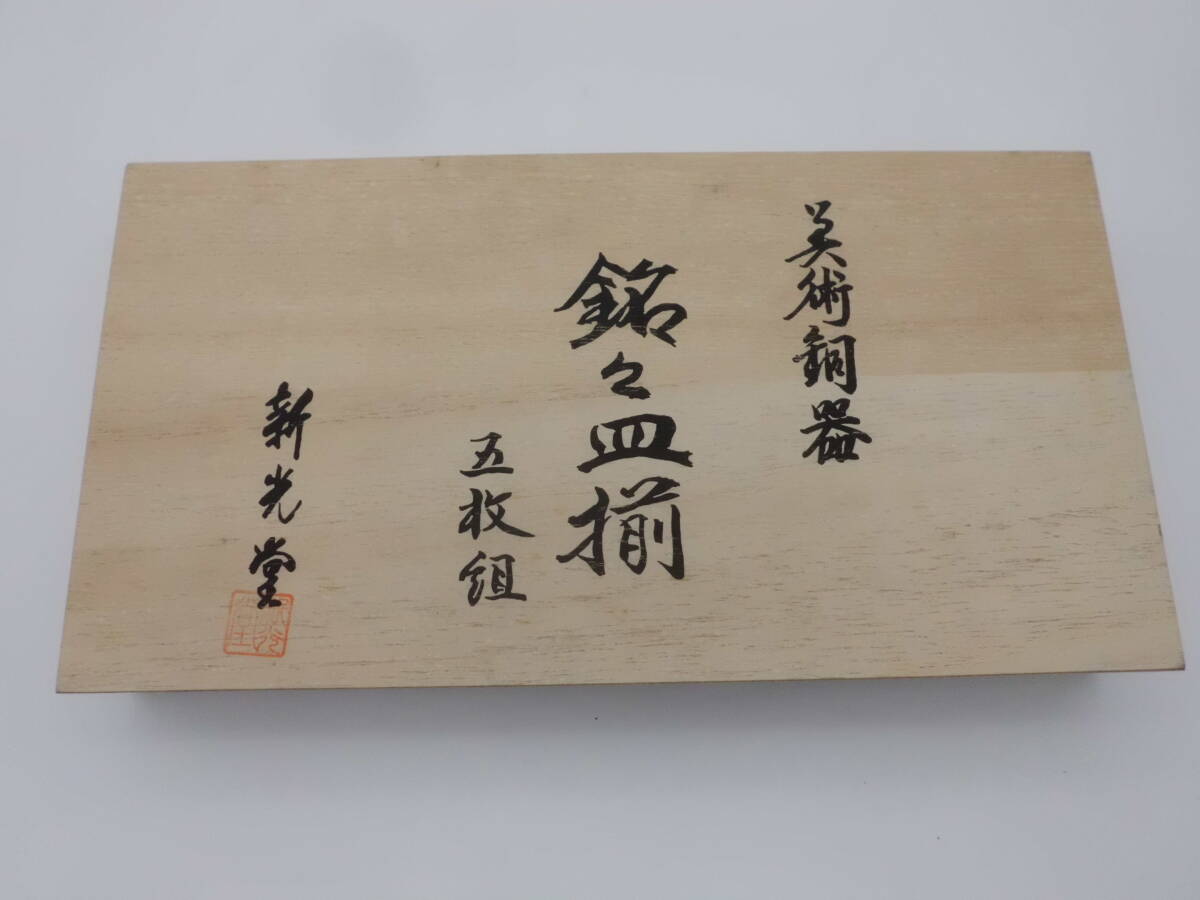 美術銅器
銘々皿揃
五枚組
新光堂